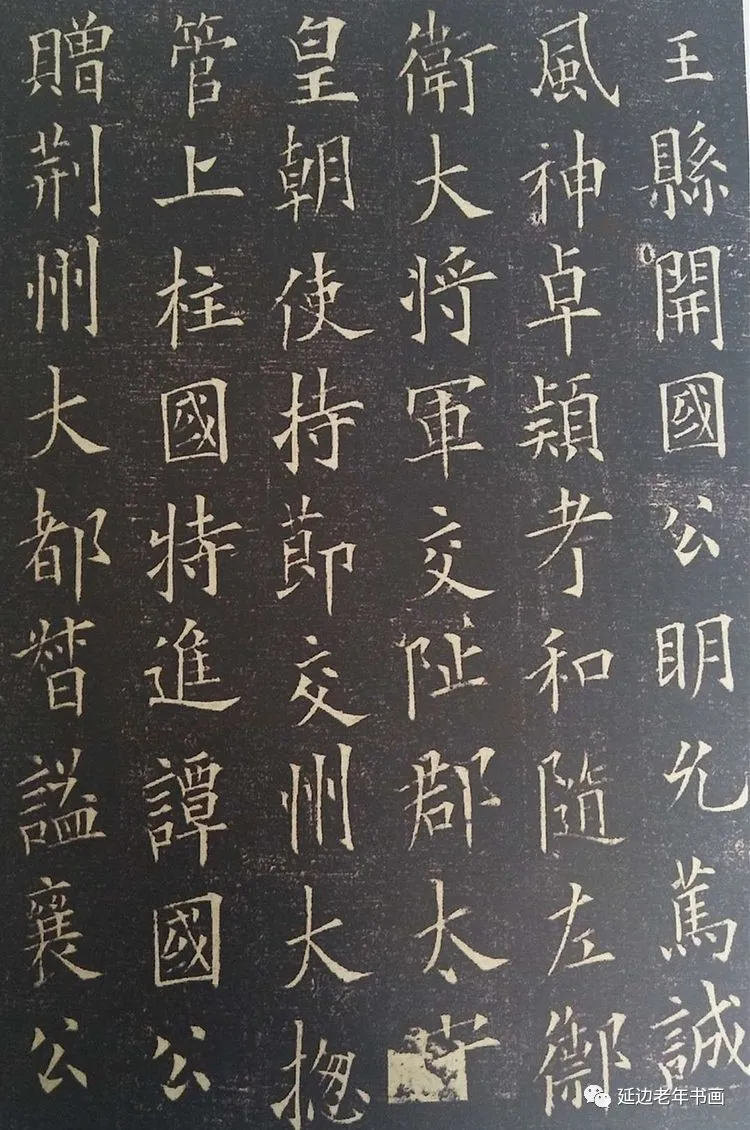 王縣開國公明允篤誠
風神卓穎考和隨左禦
衛大將軍交阯郡太
皇朝使持節交州大揔
管上柱國特進譚國公
贈荆州大都督諡襄公
延边老年书画